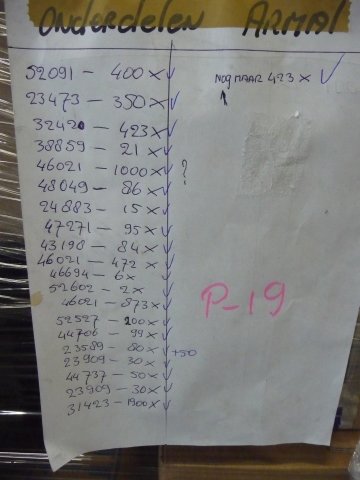 Onderdelen ARMAL
52091 - 400 x ✓
NOG MAAR 423 x ✓
23473 - 350 x ✓
↑
32420 - 423 x ✓
38859 - 21 x ✓
46021 - 1000 x ✓ ?
48049 - 86 x ✓
24883 - 15 x ✓
47271 - 95 x ✓
43198 - 84 x ✓
46021 - 472 x ✓
46694 - 6x ✓
52602 - 2x ✓
46021 - 873 x ✓
P-19
52527 - 200 x ✓
44706 - 99 x ✓
23589 - 80 x ✓ +50
23909 - 30 x ✓
44737 - 50 x ✓
23909 - 30 x ✓
31423 - 1900 x ✓